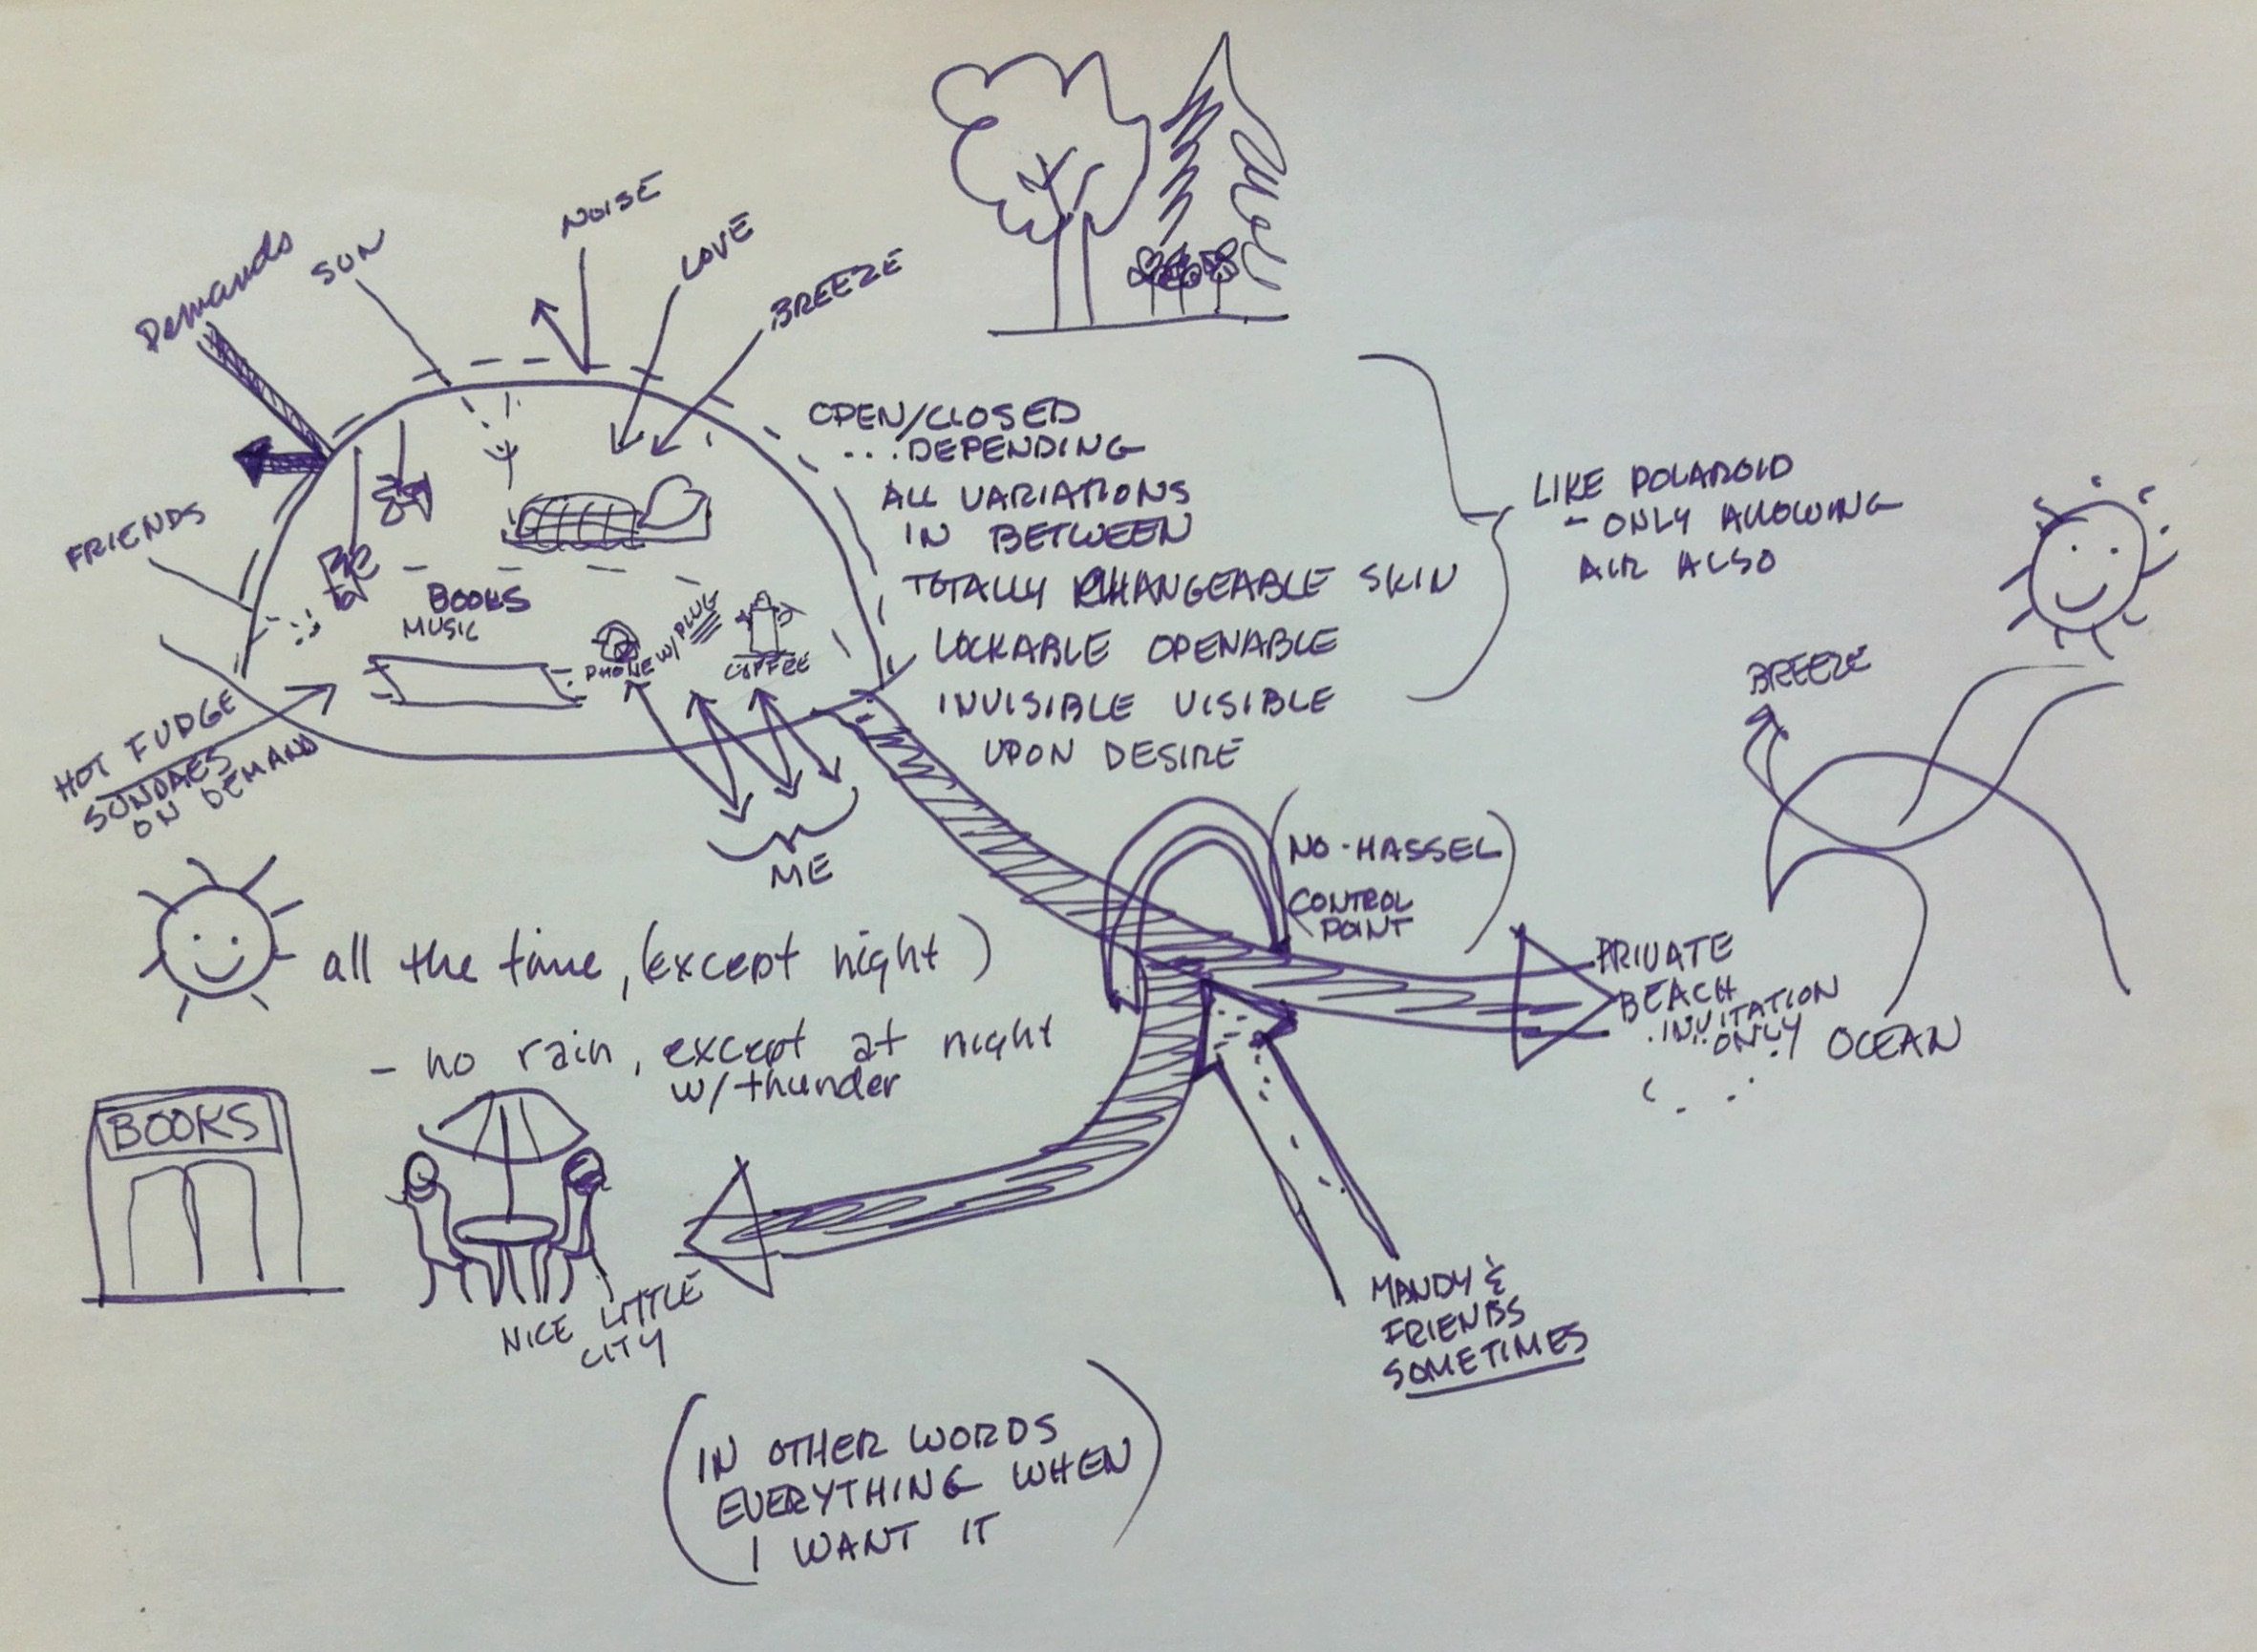 Demands
SUN
NOISE
LOVE
BREEZE
FRIENDS
HOT FUDGE
SUNDAES
ON DEMAND
BOOKS
MUSIC
PHONE W/ PLUG
COFFEE
ME
OPEN/CLOSED
...DEPENDING
ALL VARIATIONS
IN BETWEEN
TOTALLY CHANGEABLE SKIN
LOCKABLE OPENABLE
INVISIBLE VISIBLE
UPON DESIRE
LIKE POLAROID
- ONLY ALLOWING
AIR ALSO
BREEZE
(NO-HASSEL)
CONTROL
POINT
PRIVATE
BEACH
INVITATION
ONLY
OCEAN
all the time, (except night)
- no rain, except at night
w/thunder
BOOKS
NICE LITTLE
CITY
MANDY &
FRIENDS
SOMETIMES
(IN OTHER WORDS
EVERYTHING WHEN
I WANT IT)